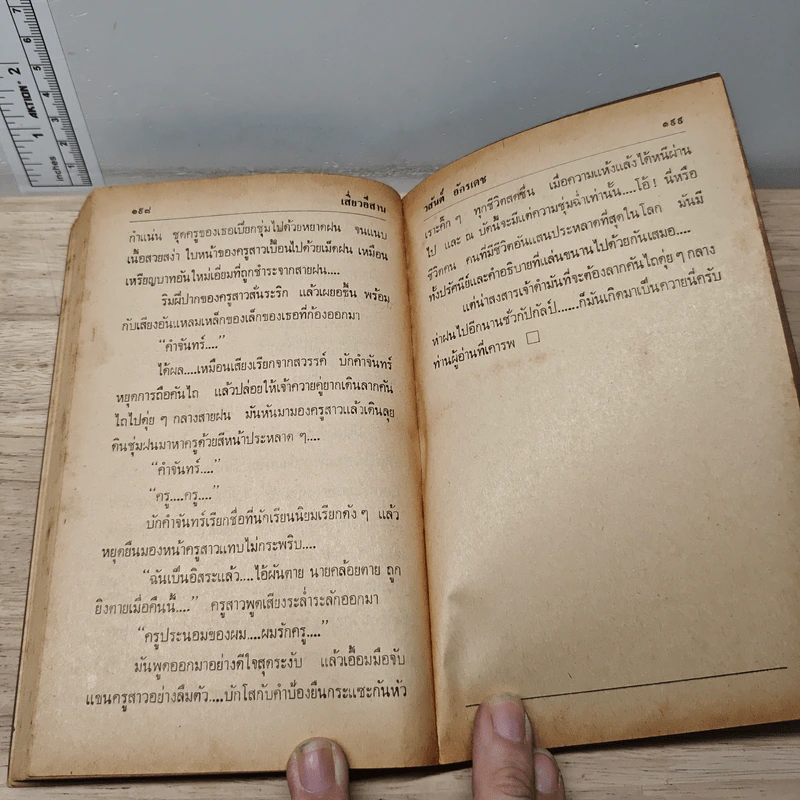 ๑๙๘ เสี่ยวอีสาน
กำแน่น ชุดครูของเธอเปียกชุ่มไปด้วยหยาดฝน จนแนบ
เนื้อสวยสง่า ใบหน้าของครูสาวเปื้อนไปด้วยเม็ดฝน เหมือน
เหรียญบาทอันใหม่เอี่ยมที่ถูกชำระจากสายฝน....
ริมฝีปากของครูสาวสั่นระริก แล้วเผยอขึ้น พร้อม
กับเสียงอันแหลมเล็กของเล็กของเธอที่ก้องออกมา
“คำจันทร์....”
ได้ผล....เหมือนเสียงเรียกจากสวรรค์ บักคำจันทร์
หยุดการถือคันไถ แล้วปล่อยให้เจ้าควายคู่ยากเดินลากคัน
ไถไปดุ่ย ๆ กลางสายฝน มันหันมามองครูสาวแล้วเดินลุย
ดินชุ่มฝนมาหาครูด้วยสีหน้าประหลาด ๆ....
“คำจันทร์....”
“ครู....ครู....”
บักคำจันทร์เรียกชื่อที่นักเรียนนิยมเรียกดัง ๆ แล้ว
หยุดยืนมองหน้าครูสาวแทบไม่กระพริบ....
“ฉันเป็นอิสระแล้ว....ไอ้ผันตาย นายคล้อยตาย ถูก
ยิงตายเมื่อคืนนี้....” ครูสาวพูดเสียงระล่ำระลักออกมา
“ครูประนอมของผม....ผมรักครู....”
มันพูดออกมาอย่างดีใจสุดระงับ แล้วเอื้อมมือจับ
แขนครูสาวอย่างลืมตัว....บักโสกับคำป้องยืนกระแซะกันหัว
วสันต์ อักรเดช ๑๙๙
เราะคิ๊ก ๆ ทุกชีวิตสดชื่น เมื่อความแห้งแล้งได้หนีผ่าน
ไป และ ณ บัดนี้จะมีแต่ความชุ่มฉ่ำเท่านั้น....โอ้! นี่หรือ
ชีวิตคน คนที่มีชีวิตอันแสนประหลาดที่สุดในโลก มันมี
ทั้งปรัศนีย์และคำอธิบายที่แล่นขนานไปด้วยกันเสมอ....
แต่น่าสงสารเจ้าดำมันที่จะต้องลากคันไถดุ่ย ๆ กลาง
ห่าฝนไปอีกนานชั่วกัปกัลป์......ก็มันเกิดมาเป็นควายนี่ครับ
ท่านผู้อ่านที่เคารพ
AKTION
inches
1
2
5
6
7